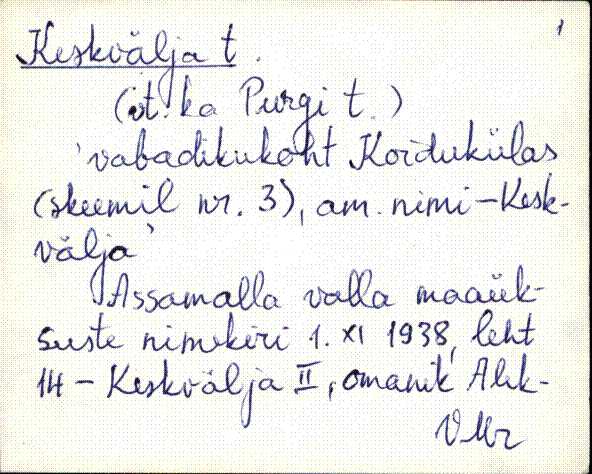 1
Keskvälja t.
(vt. ka Purgi t.)
'vabadikukoht Koidukülas
(skeemil nr. 3), am. nimi – Kesk-
välja'
Assamalla valla maaük-
suste nimekiri 1. XI 1938, leht
14 – Keskvälja II, omanik